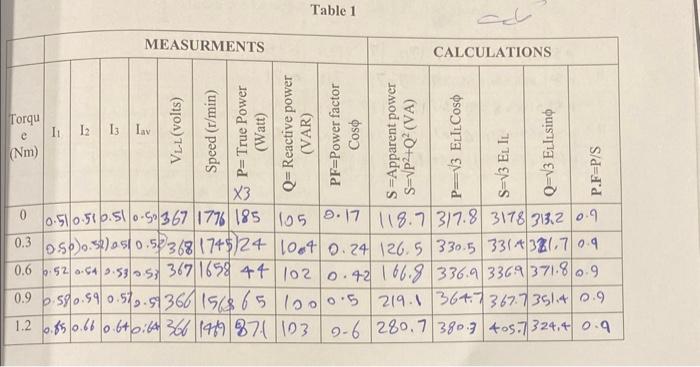 Table 1
MEASURMENTS CALCULATIONS
Torqu e (Nm) I1 I2 I3 Iav VL-L(volts) Speed (r/min) P= True Power (Watt) X3 Q= Reactive power (VAR) PF=Power factor Cosϕ S =Apparent power S=√P²+Q² (VA) P==√3 ELILCosϕ S=√3 EL IL Q=√3 ELILsinϕ P.F=P/S
0 0.51 0.51 0.51 0.50 367 1776 185 105 0.17 118.7 317.8 3178 313.2 0.9
0.3 0.50 0.52 0.51 0.52 368 1745 24 100.4 0.24 126.5 330.5 331.4 321.7 0.9
0.6 0.52 0.54 0.53 0.53 367 1658 44 102 0.42 166.8 336.9 3369 371.8 0.9
0.9 0.58 0.59 0.57 0.59 366 1568 65 100 0.5 219.1 364.7 367.7 351.4 0.9
1.2 0.65 0.66 0.64 0.64 366 1419 871 103 0-6 280.7 380.3 405.7 324.4 0.9